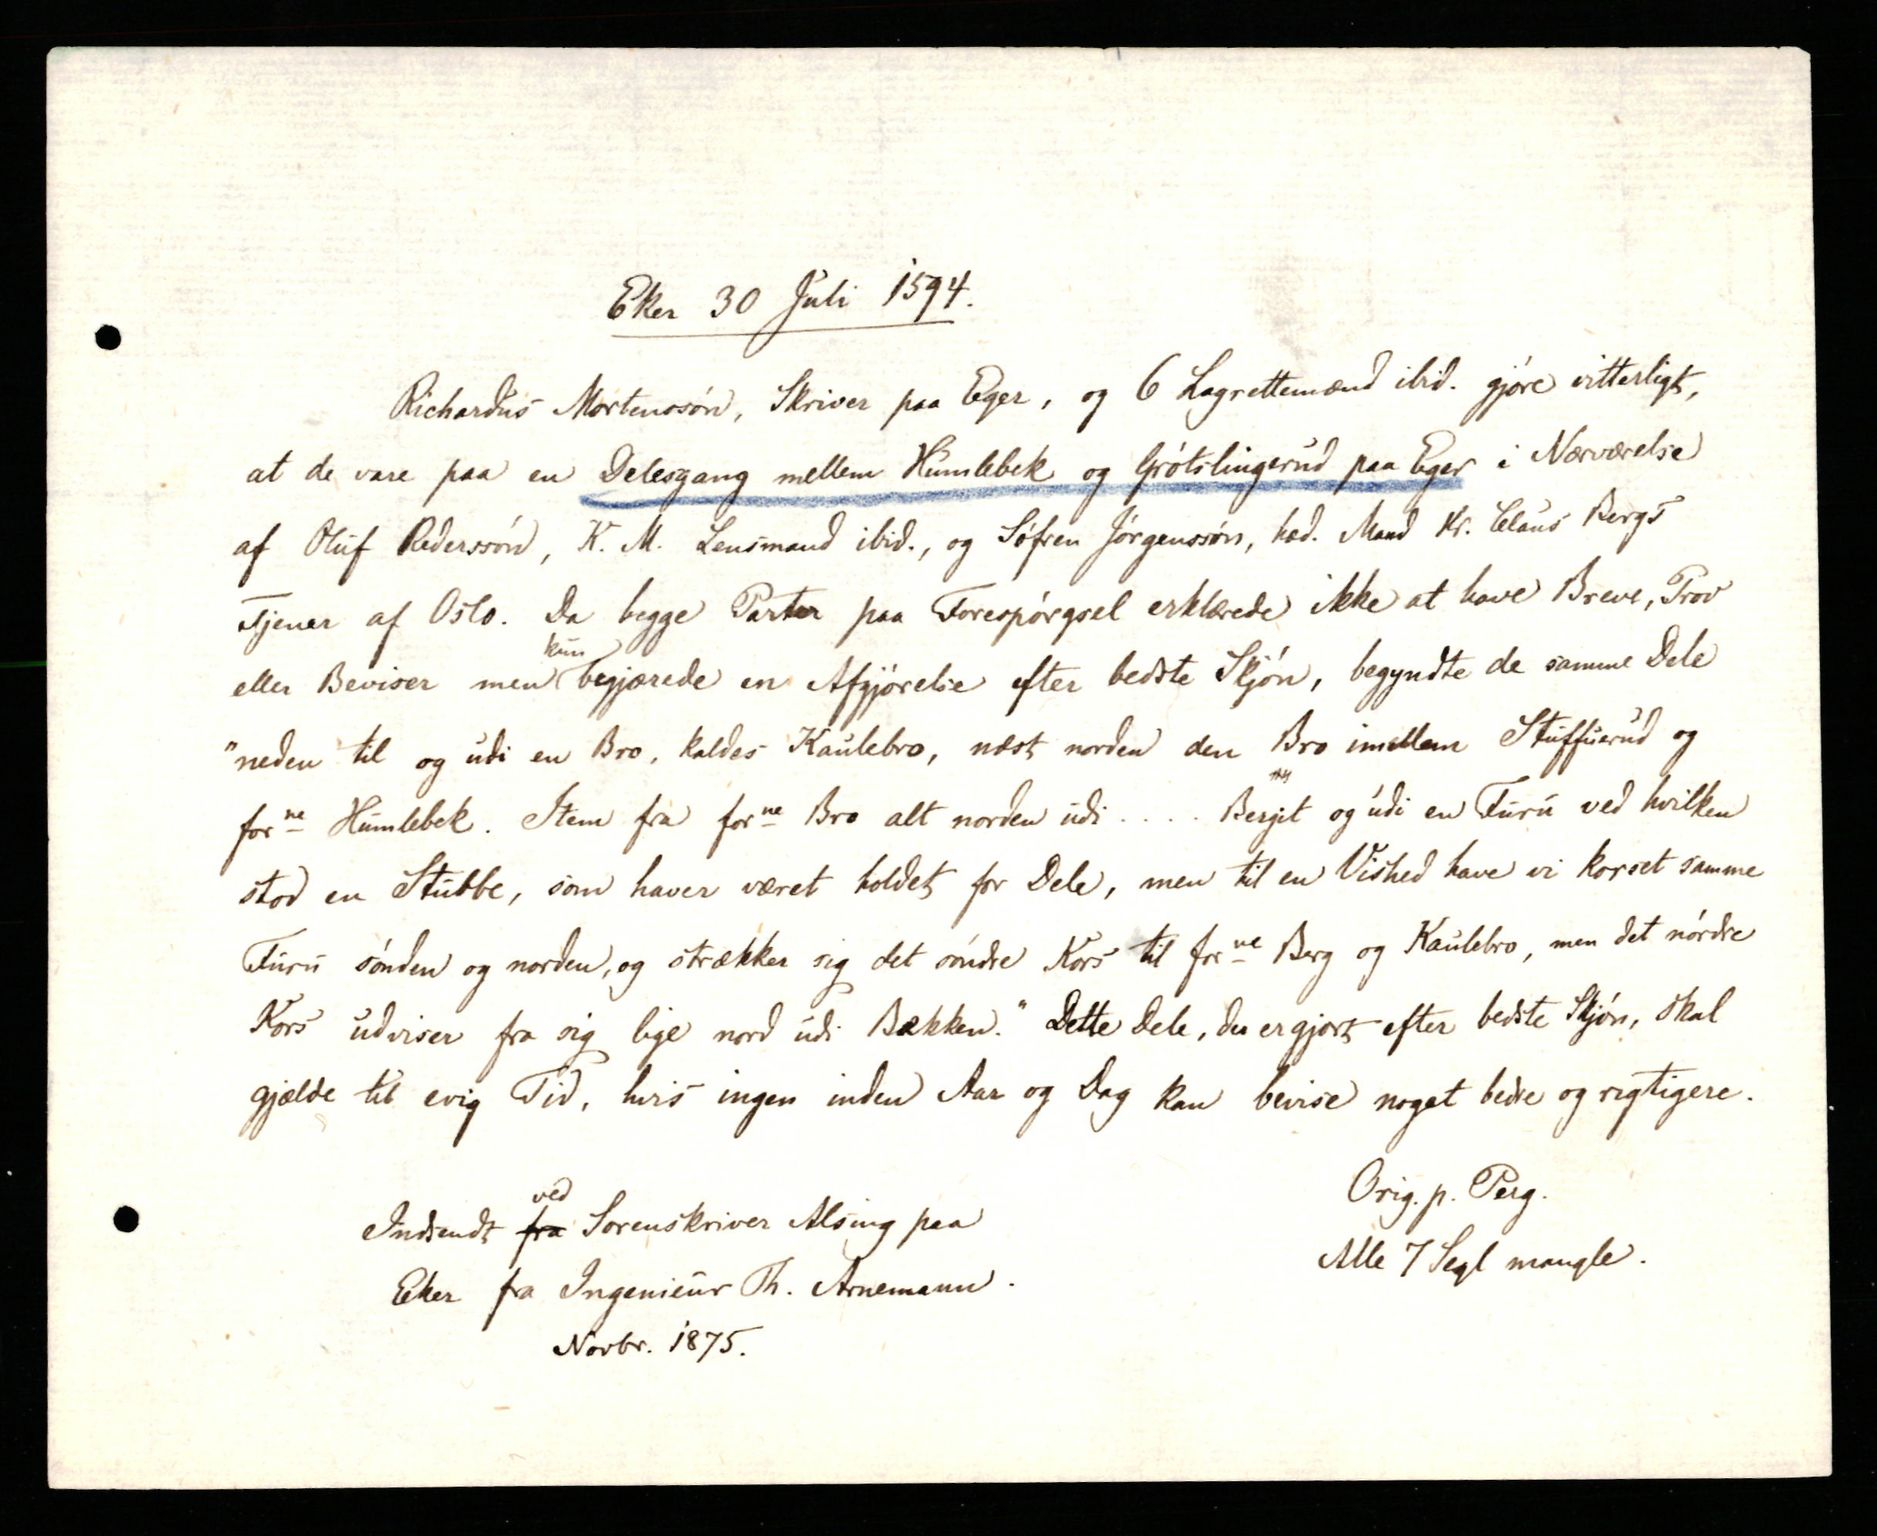 Eker 30 Juli 1594.
Richardus Mortenssón, Skriver paa Eger, og 6 Lagrettemænd ibid. gjóre vitterligt,
at de vare paa en Delesgang mellem Humlebek og Grótslingerud paa Eger i Nærværelse
af Oluf Pederssón, K. M. Lensmand ibid., og Sófren Jórgenssón, hæd. Mand Hr. Claus Bergs
Tjener af Oslo. Da begge Parter paa Forespórgsel erklærede ikke at have Breve, Prov
eller Beviser men kun begjærede en Afgjórelse efter bedste Skjón, begyndte de samme Dele
"neden til og udi en Bro, kaldes Kaulebro, næst norden den Bro imellem Stuffuerud og
forne Humlebek. Item fra forne Bro alt norden udi .... Bergit og udi en Furu ved hvilken
stod en Stubbe, som haver været holdet for Dele, men til en Vished have vi korset samme
Furu sónden og norden, og strækker sig det sóndre Kors til forne Berg og Kaulebro, men det nórdre
Kors udviser fra sig lige nord udi Bækken." Dette Dele, der er gjort efter bedste Skjón, skal
gjælde til evig Tid, hvis ingen inden Aar og Dag kan bevise noget bedre og rigtigere.
Orig. p. Perg.
Alle 7 Segl mangle.
Indsendt fra ved Sorenskriver Alsing paa
Eker fra Ingenieur Th. Arnemann.
Novbr. 1875.